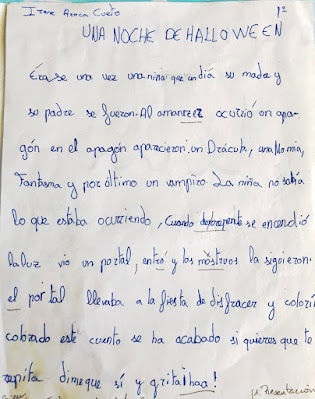 Irene Aroca Cueto 1º
UNA NOCHE DE HALLOWEEN
Érase una vez una niña que un día su made y
su padre se fueron. Al amanezer ocurrió on apa-
gón en el apagón aparecieron: un Drácula, una Momia,
Fantasma y por último un vampiro. La niña no sabía
lo que estaba ocurriendo, cuando derrepente se encendió
la luz vio un portal, entró y los móstruos la siguieron.
el portal llevaba a la fiesta de disfrazer y colorí
cobrado este cuento se ha acabado si quieres que te
repita dime que sí y grita ¡haa!
Presentación